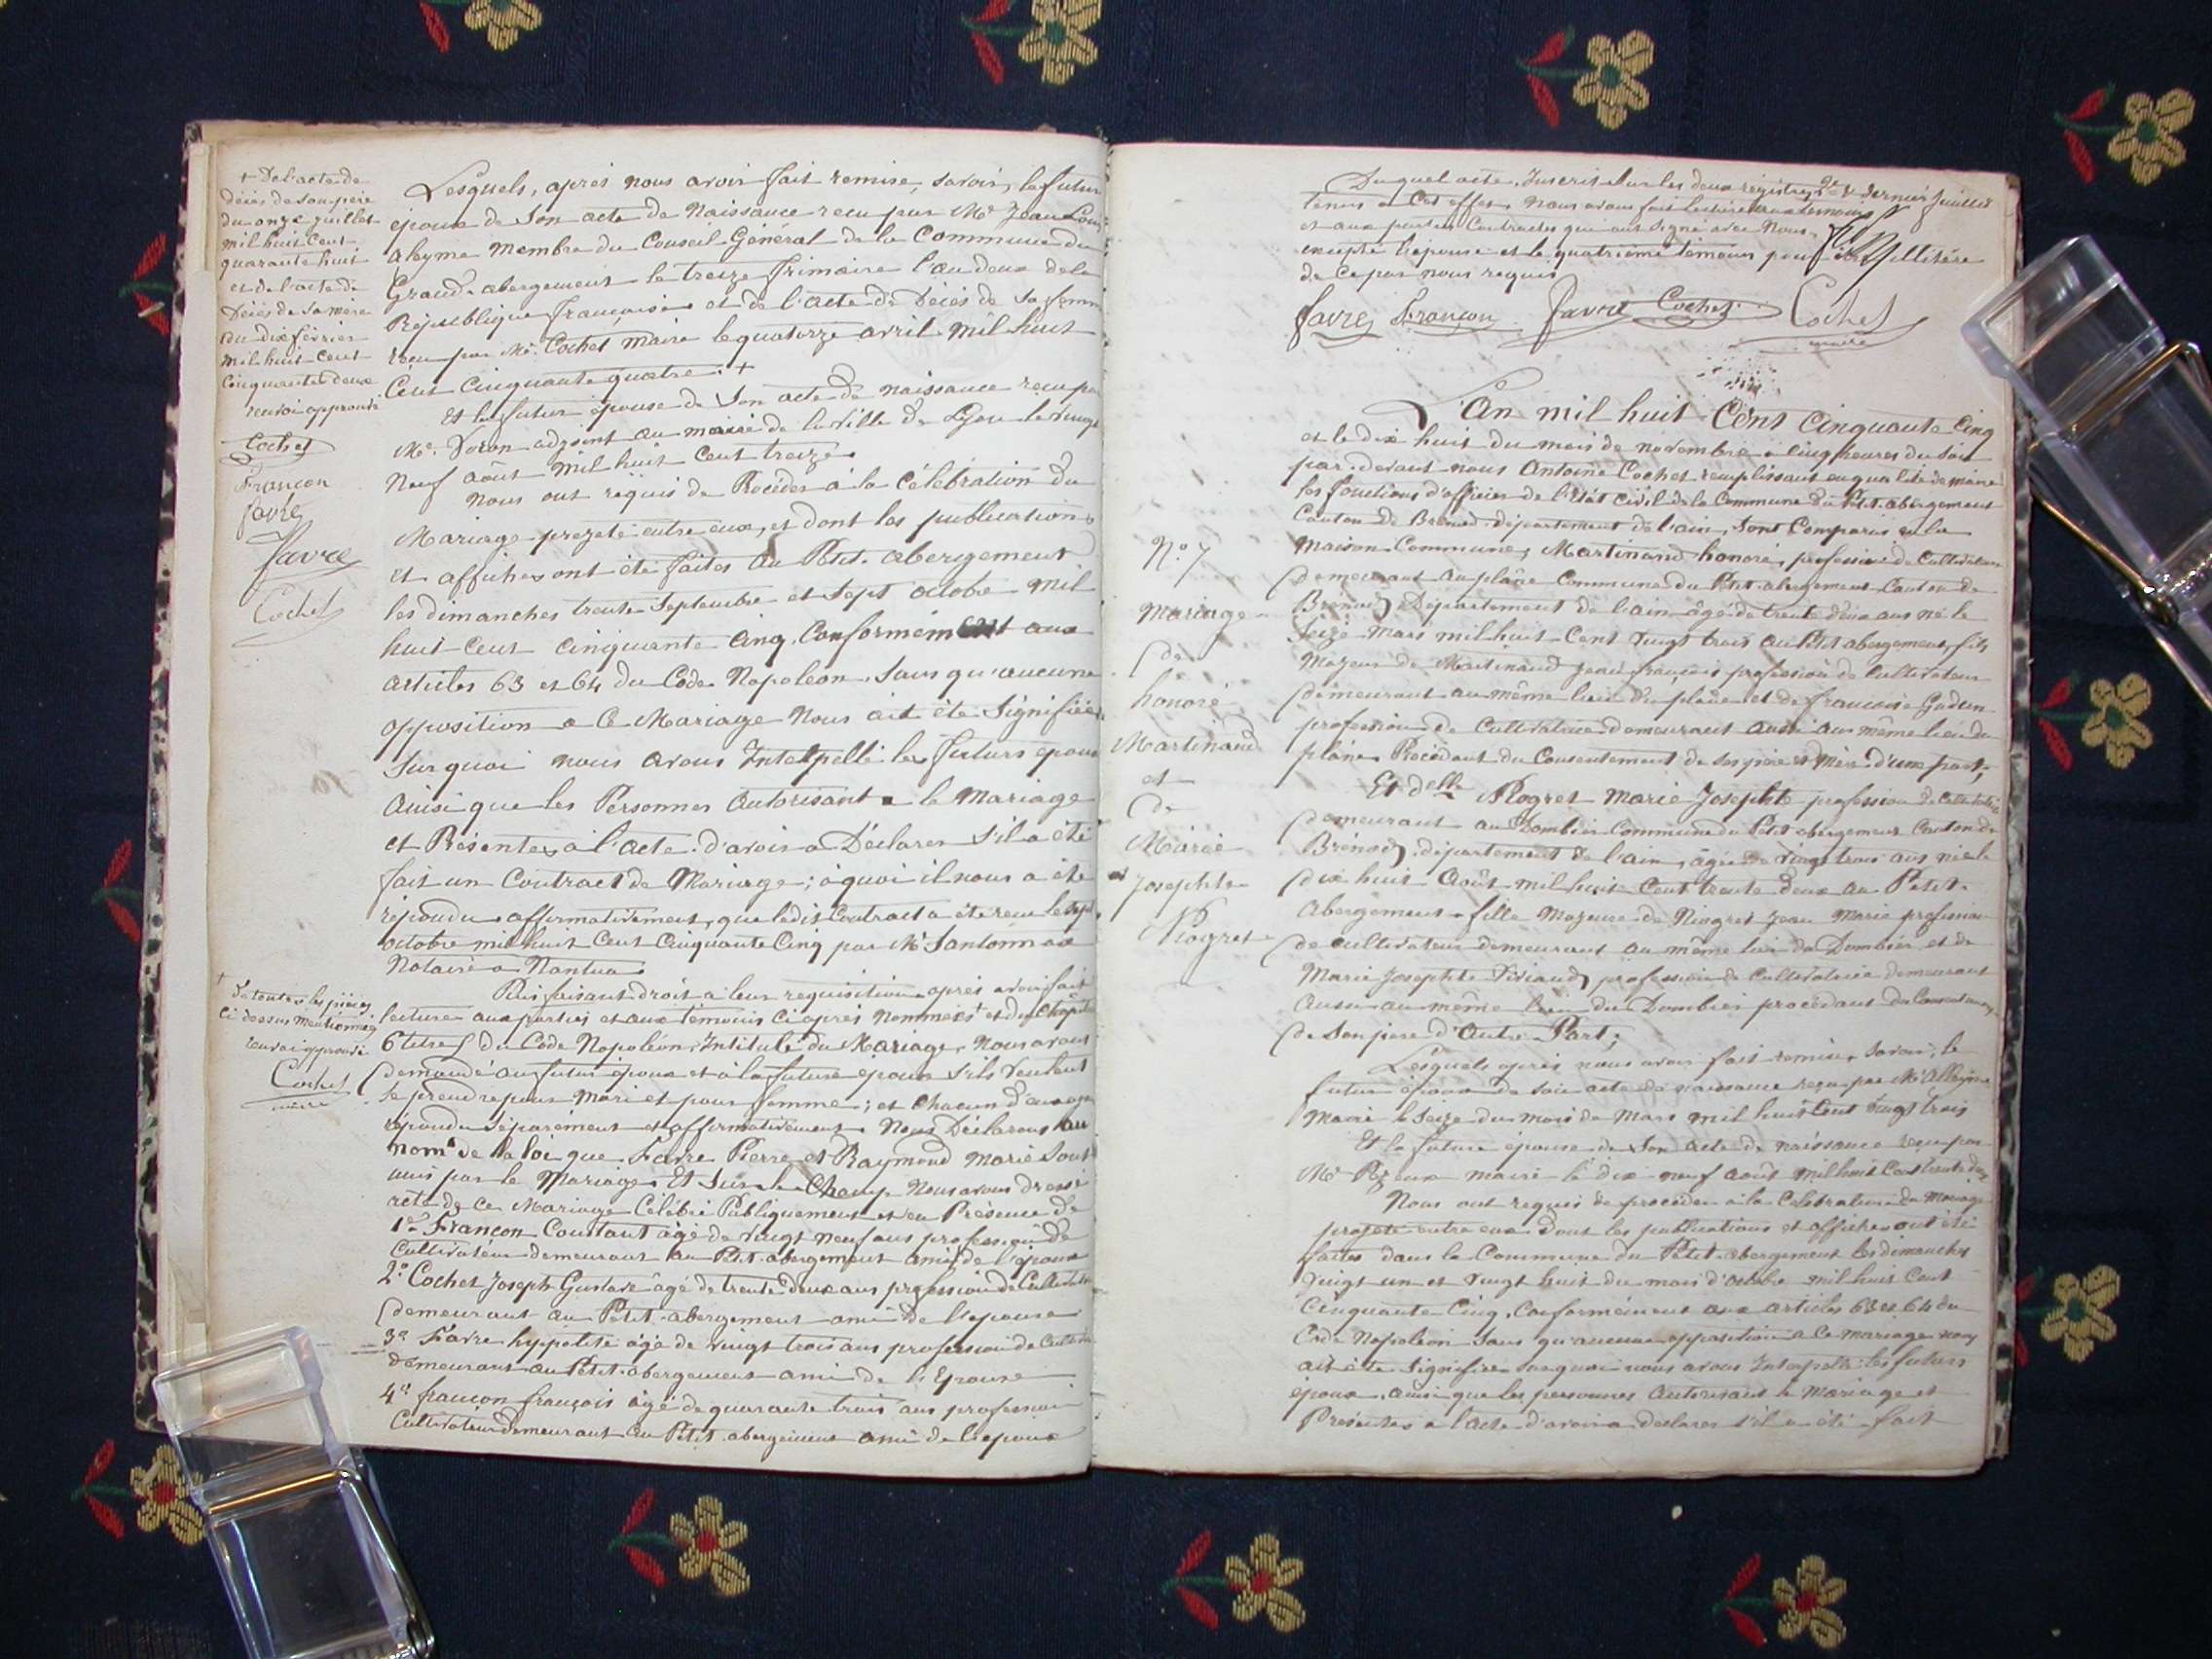 + De l'acte de
décès de son père
du onze juillet
mil huit cent
quarante huit
et de l'acte de
décès de sa mère
du dix février
mil huit cent
cinquante deux
renvoi approuvé
Cochet
Françon
favre
favre
Cochet
Lesquels, après nous avoir fait remise, savoir, le futur
époux de Son acte de Naissance recu par Mr Jean Louis
aleyme Membre du Conseil Général de la Commune du
Grand abergement le treize frimaire l'an deux de la
République française et de l'acte de Décès de Sa femme
recu par Mr Cochet Maire le quatorze avril mil huit
Cent Cinquante quatre. +
Et la future épouse de Son acte de naissance recu par
Mr. adjoint au maire de la ville de Lyon le vingt
Neuf août Mil huit Cent treize.
Nous ont réquis de Procéder à la célébration du
Mariage projeté entre eux, et dont les publications
et affiches ont été faites au Petit abergement
les dimanches trente Septembre et Sept octobre mil
huit Cent Cinquante Cinq, Conformément aux
articles 63 et 64 du Code Napoléon, Sans qu'aucune
opposition a Ce Mariage Nous ait été Signifiée
Sur quoi nous avons Interpellé les futurs époux
Ainsi que les Personnes autorisant le Mariage
et Présentes à l'acte d'avoir a Déclarer S'il a été
fait un Contract de Mariage; à quoi il nous a été
répondu affirmativement, que ledit Contract a été recu le Sept
octobre mil huit Cent Cinquante Cinq par Mr Santonnax
Notaire a Nantua.
+ De toutes les pièces
Ci dessus mentionnées
renvoi approuvé
Cochet
maire
Puis faisant droit a leur requisition après avoir fait
lecture aux parties et aux temoins Ci après Nommées + et du Chapitre
6 titre 5 du Code Napoléon, Intitulé du Mariage, Nous avons
demandé au futur époux et à la future épouse S'ils veulent
Se prendre pour Mari et pour femme; et Chacun d'eux ayant
répondu Séparément et affirmativement. Nous Déclarons au
nom de la loi que Favre Pierre et Raymond Marie Sont
unis par le Mariage. Et Sur le Champ Nous avons dressé
acte de Ce Mariage Célébré Publiquement et en Présence de
1er Françon Constant âgé de vingt neuf ans profession de
Cultivateur demeurant au Petit abergement ami de l'époux
2e Cochet Joseph Gustave âgé de trente deux ans profession de Cultivateur
demeurant au Petit abergement ami de l'épouse
3e Favre hyppolite âgé de vingt trois ans profession de Cultivateur
demeurant au Petit abergement ami de l'Epouse
4e françon françois âgé de quarante trois ans profession
Cultivateur demeurant au Petit abergement ami de l'époux
2e & dernier feuillet
Du quel acte, Inscrit Sur les deux registres
tenus a Cet effet, Nous avons fait lecture aux temoins
et aux parties Contractes qui ont Signé avec Nous,
excepté l'épouse et le quatrième témoin pour être illitéré
de Ce par nous requis
favre françon favre Cochet Cochet
maire
L'An mil huit Cent Cinquante Cinq
et le dix huit du mois de novembre à Cinq heures du Soir
par devant nous Antoine Cochet remplissant en qualité de maire
les fonctions d'officier de l'état Civil de la Commune du Petit abergement
Canton de Brénod département de l'ain, Sont Comparus en la
Maison Commune, Martinand honoré, profession de Cultivateur
demeurant au plâne Commune du Petit abergement Canton de
Brénod, Département de l'ain âgé de trente deux ans né le
Seize Mars mil huit Cent vingt trois au Petit abergement, fils
Majeur de Martinand Jean françois profession de Cultivateur
demeurant au même lieu du plane et de françoise Gudin
profession de Cultivatrice demeurant aussi au même lieu du
plâne Procédant du Consentement de ses père et Mère d'une part,
N° 7
Mariage
de
honoré
Martinand
et
de
Marie
Josephte
Niogret
Et delle Niogret Marie Josephte profession de Cultivatrice
demeurant au Dombier Commune du Petit abergement Canton de
Brénod, département de l'ain, âgée de vingt trois ans née le
dix huit Août mil huit Cent trente deux au Petit
Abergement fille Majeure de Niogret Jean Marie profession
de cultivateur demeurant au même lieu du Dombier et de
Marie Josephte Viviand profession de Cultivatrice demeurant
aussi au même lieu du Dombier procédant du Consentement
de Son père d'Autre Part;
Lesquels après nous avoir fait remise, Savoir; le
futur époux de Son acte de naissance reçu par Mr Alleyme
Maire le Seize du mois de Mars mil huit Cent vingt trois
Et la future épouse de Son acte de naissance reçu par
Mr maire le dix neuf août mil huit Cent trente deux
Nous ont requis de procéder à la Célébration du Mariage
projeté entre eux dont les publications et affiches ont été
faites dans la Commune du Petit abergement les dimanches
vingt un et vingt huit du mois d'octobre mil huit Cent
Cinquante Cinq, Conformément aux articles 63 et 64 du
Code Napoléon Sans qu'aucune opposition a Ce mariage nous
ait été Signifiée Sur quoi nous avons Interpellé les futurs
époux, ainsi que les personnes Autorisant le Mariage et
Présentes a l'acte d'avoir a déclarer S'il a été fait